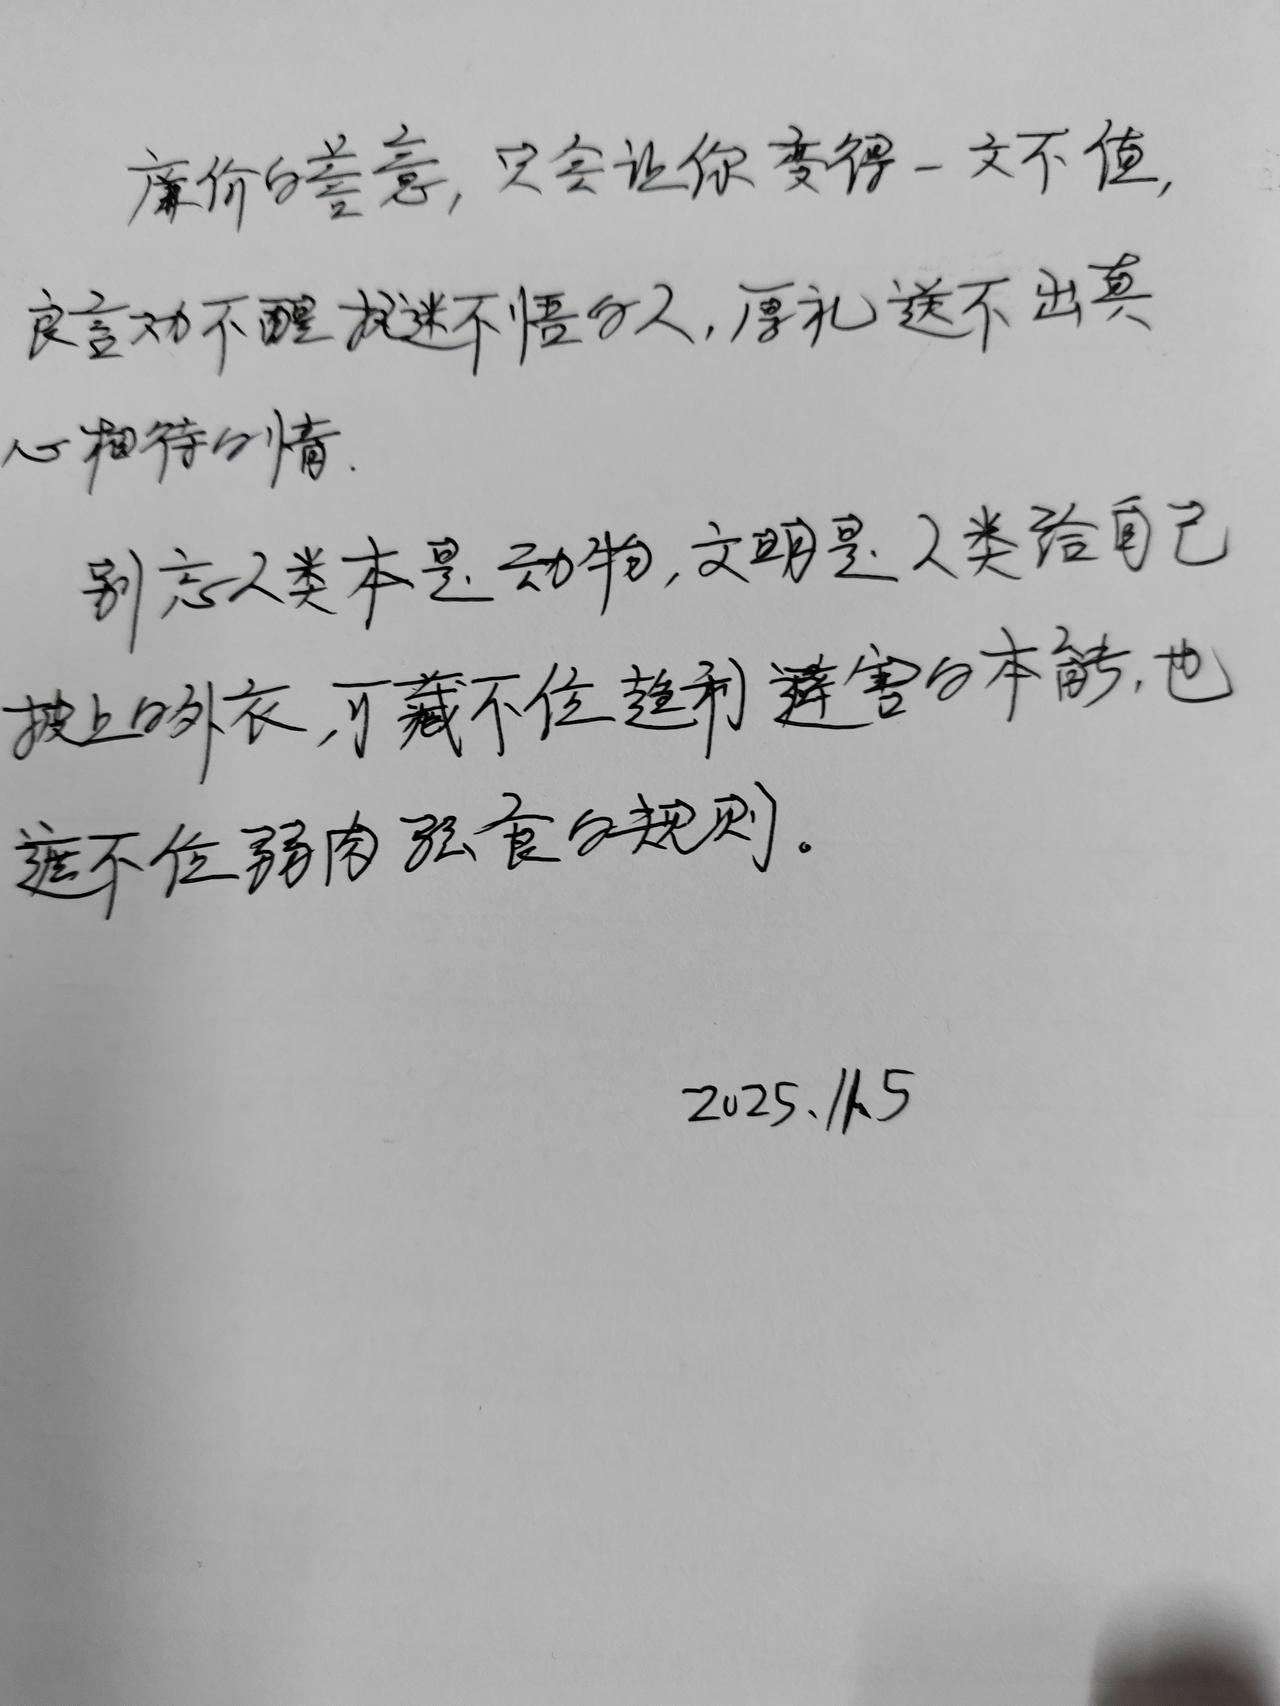 廉价的善意,只会让你变得一文不值,
良言劝不醒执迷不悟的人,厚礼送不出真
心相待的情.
别忘人类本是动物,文明是人类给自己
披上的外衣,可藏不住趋利避害的本能,也
遮不住弱肉强食的规则。
2025.11.5